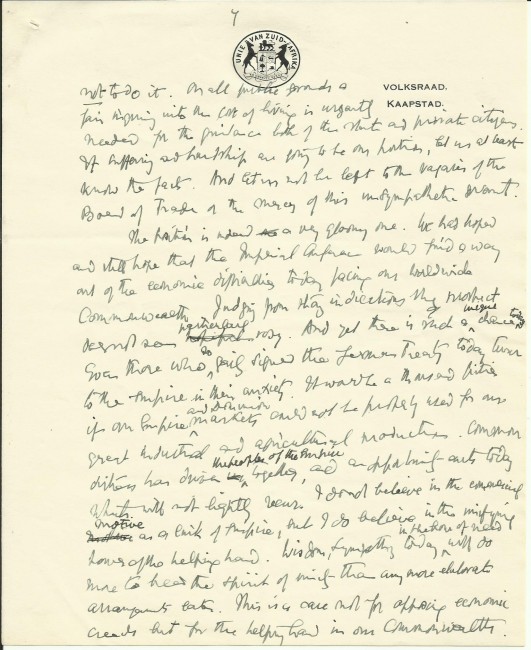 4
UNIE VAN ZUID-AFRIKA
VOLKSRAAD.
KAAPSTAD.
not to do it. On all public grounds a
fair inquiry into the cost of living is urgently
needed for the guidance both of the state and private citizens.
If suffering and hardship are going to be our portion, let us at least
know the facts. And let us not be left to the vagaries of the
Board of Trade or the mercy of this unsympathetic Govnt.
The position is indeed a very gloomy one. We had hoped
and still hope that the Imperial Conference would find a way
out of the economic difficulties today facing our worldwide
Commonwealth. Judging from stray indications the prospect
does not seem particularly rosy. And yet there is such a unique chance today
Even those who so gaily signed the German Treaty today turn
to the Empire in their anxiety. It would be a thousand pities
if our Empire and Dominion markets could not be properly used for our
great industrial and agricultural production. Common
distress has driven the peoples of the Empire together, and an opportunity exists today
which will not lightly recur. I do not believe in the commercial
motive as a link of Empire, but I do believe in the unifying
power of the helping hand. Wisdom & sympathy today in the hour of need will do
more to heal the spirit of unity than any more elaborate
arrangements later. This is a case not for opposing economic
creeds but for the helping hand in our Commonwealth.